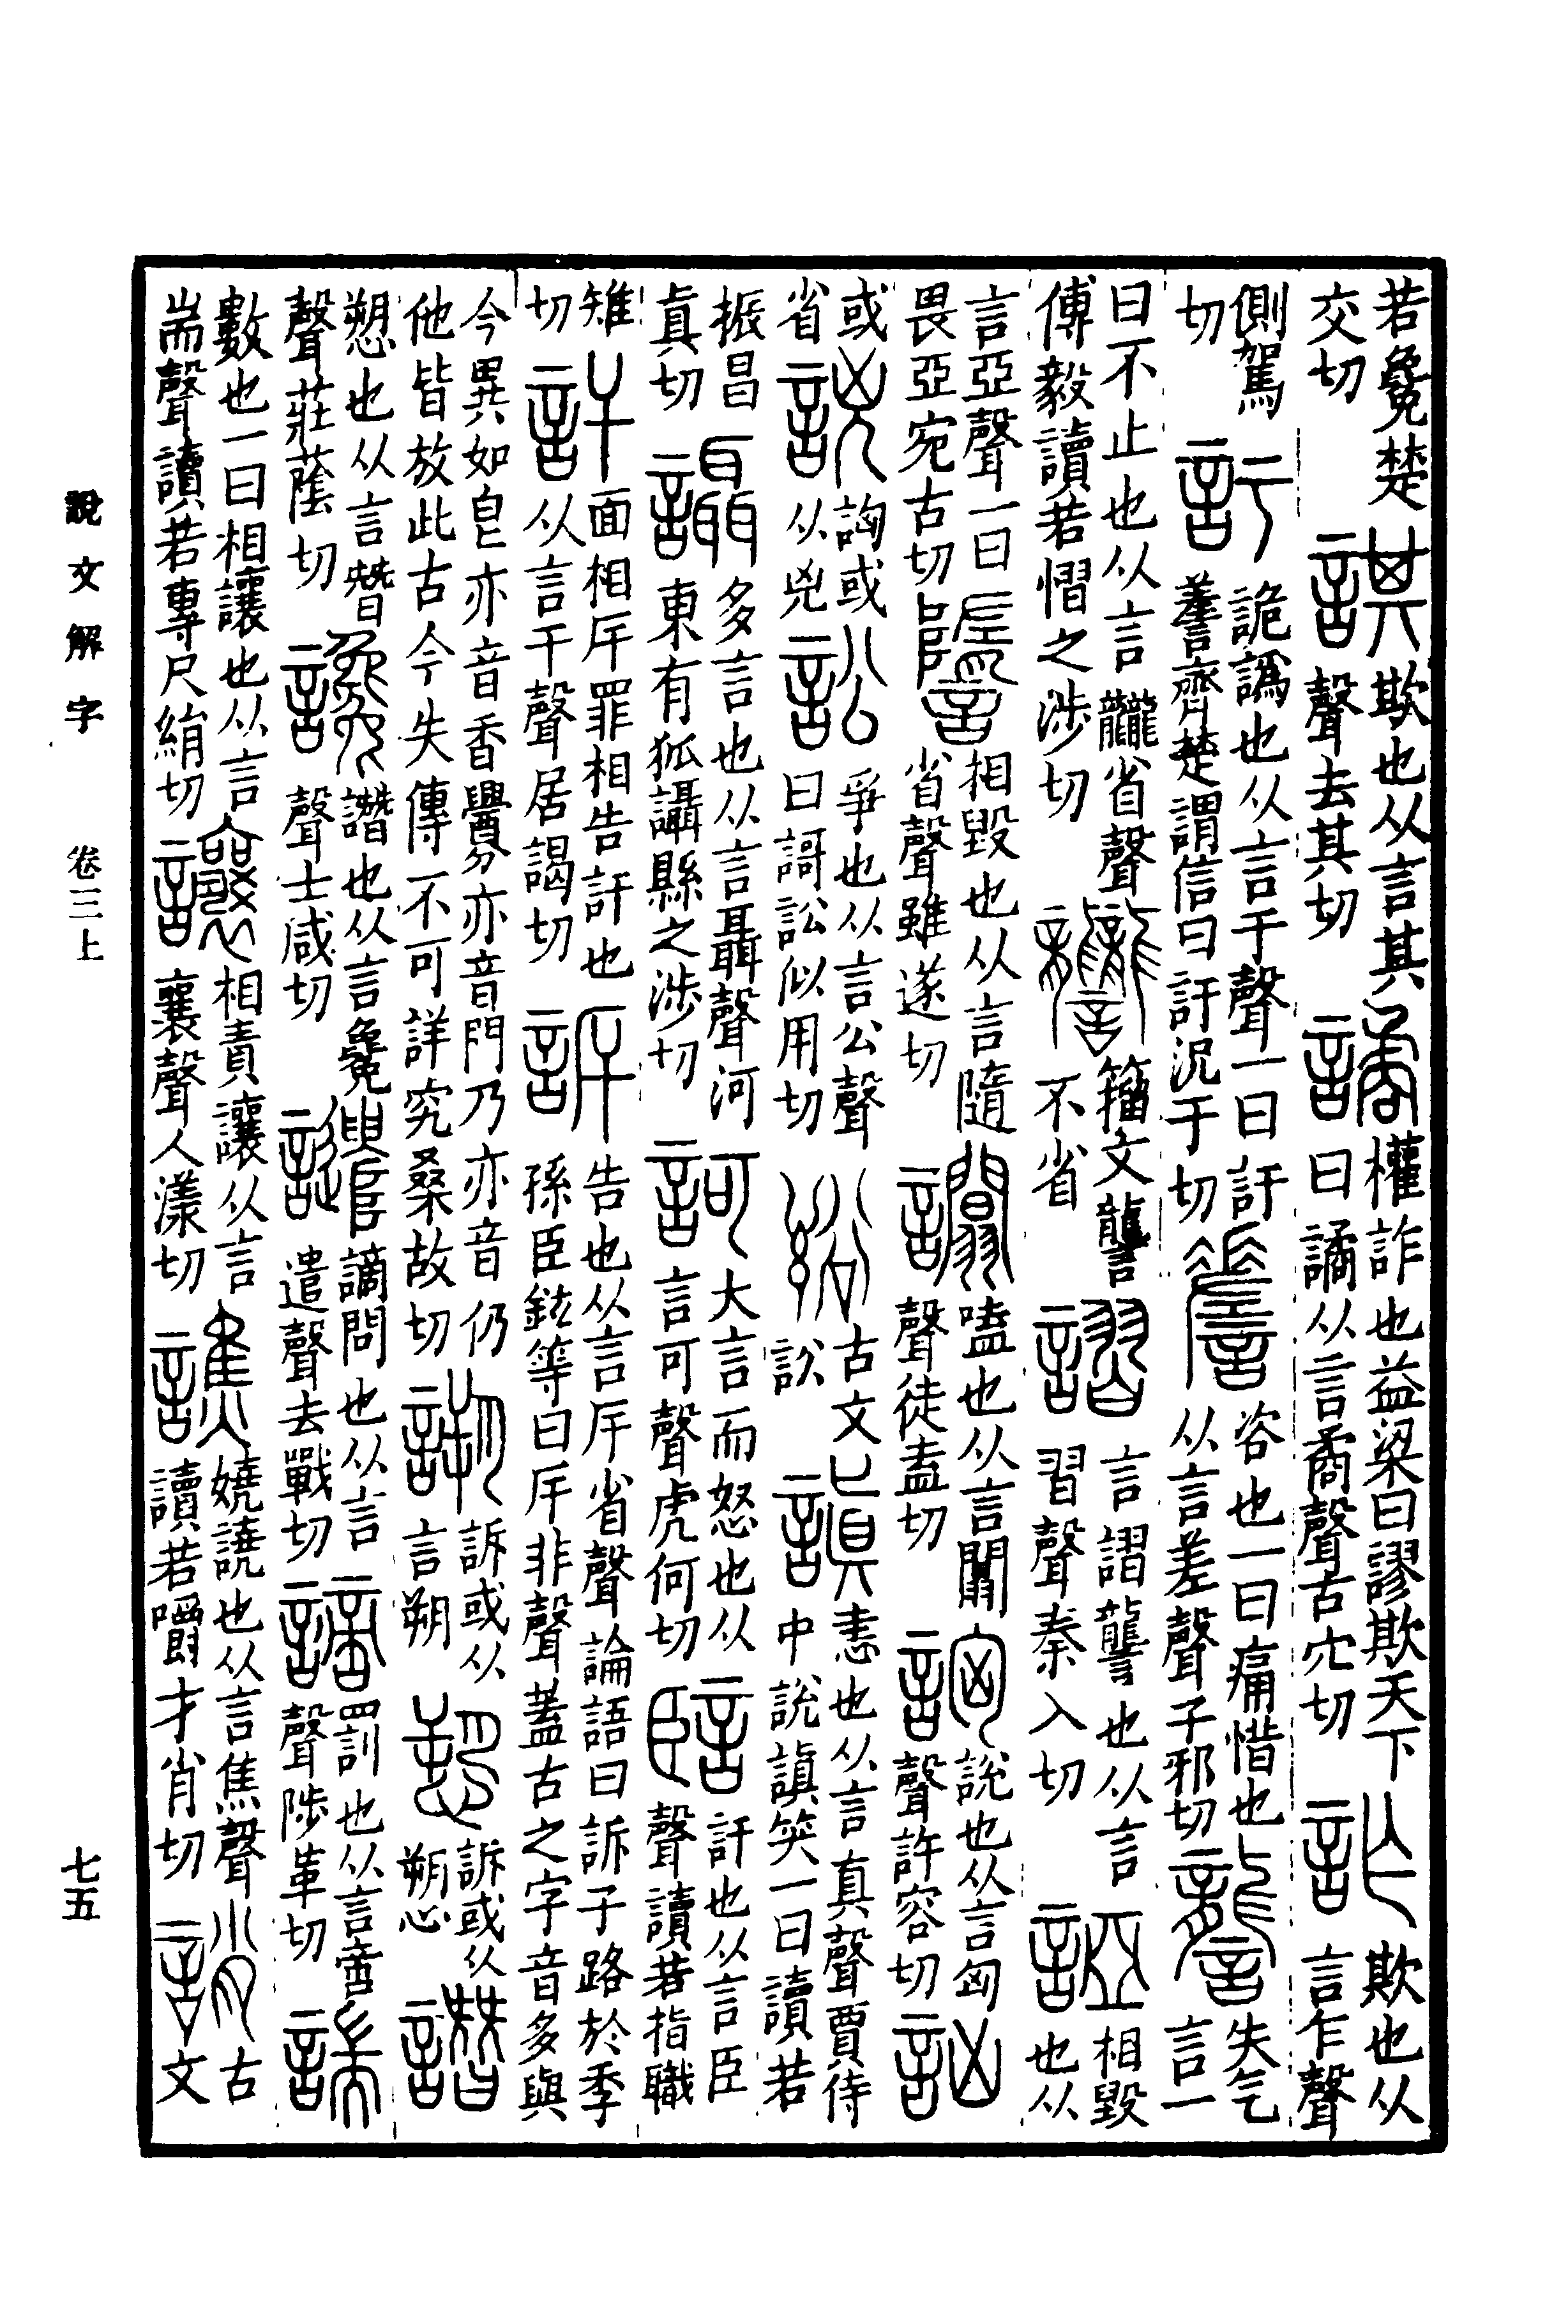 若毚楚交切諆欺也从言其聲去其切譎權詐也益梁曰謬欺天下曰譎从言矞聲古穴切詐欺也从言乍聲
側駕切訏詭譌也从言于聲一曰訏𧪘齊楚謂信曰訏況于切𧪘咨也一曰痛惜也从言差聲子邪切讋失气言一
曰不止也从言龖省聲傅毅讀若慴之涉切籒文讋不省謵言謵讋也从言習聲秦入切䛩相毀也从
言亞聲一曰畏亞宛古切䜐相毀也从言隨省聲雖遂切嗑也从言闒聲徒盍切詾說也从言匈聲許容切訩
或省詾或从兇訟爭也从言公聲曰謌訟似用切古文訟謓恚也从言真聲賈侍中說謓笑一曰讀若
振昌真切讘多言也从言聶聲河東有狐讘縣之涉切訶大言而怒也从言可聲虎何切䛊訐也从言臣聲讀若指職
雉切訐面相𢇮罪相告訐也从言干聲居謁切訴告也从言𢇮省聲論語曰訴子路於季孫臣鉉等曰𢇮非聲蓋古之字音多與
今異如皀亦音香釁亦音門乃亦音仍他皆放此古今失傳不可詳究桑故切訴或从言朔愬訴或从朔心譖
愬也从言朁聲莊蔭切讒譖也从言毚聲士咸切譴謫問也从言遣聲去戰切謫罰也从言啻聲陟革切諯
數也一曰相讓也从言耑聲讀若專尺絹切讓相責讓从言襄聲人漾切譙嬈譊也从言焦聲讀若嚼才肖切誚古文
說文解字 卷三上 七五